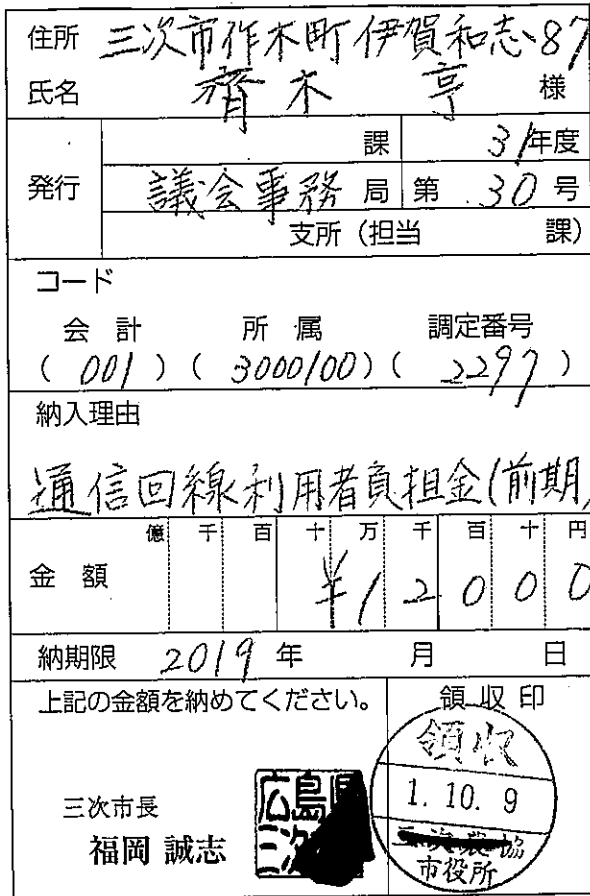 住所 三次市作木町伊賀和志87
氏名 齊木 亨 様
課 31年度
発行 議会事務局 第30号
支所(担当 課)
コード
会計 所属 調定番号
( 001 ) ( 3000100 ) ( 2297 )
納入理由
通信回線利用者負担金(前期)
億 千 百 十 万 千 百 十 円
金額 ¥12000
納期限 2019年 月 日
上記の金額を納めてください。
領収印
領収
1. 10. 9
市役所
三次市長
福岡 誠志
広島県
三次